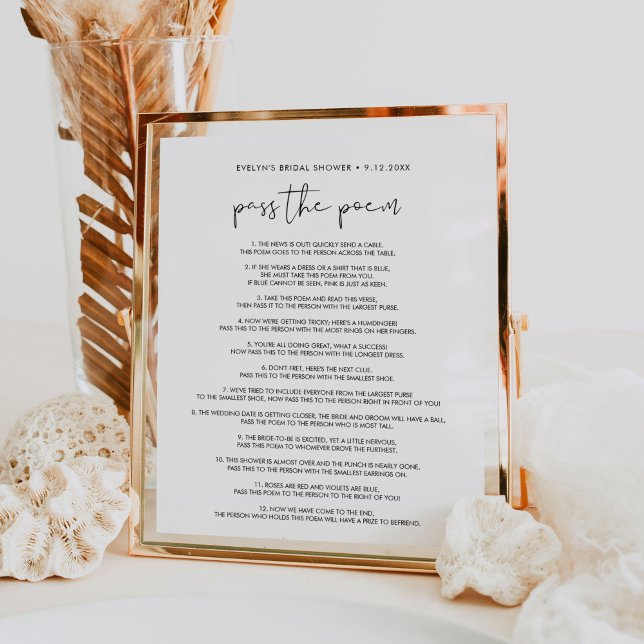 EVELYN'S BRIDAL SHOWER • 9.12.20XX
pass the poem
1. THE NEWS IS OUT! QUICKLY SEND A CABLE.
THIS POEM GOES TO THE PERSON ACROSS THE TABLE.
2. IF SHE WEARS A DRESS OR A SHIRT THAT IS BLUE,
SHE MUST TAKE THIS POEM FROM YOU.
IF BLUE CANNOT BE SEEN, PINK IS JUST AS KEEN.
3. TAKE THIS POEM AND READ THIS VERSE,
THEN PASS IT TO THE PERSON WITH THE LARGEST PURSE.
4. NOW WE'RE GETTING TRICKY; HERE'S A HUMDINGER!
PASS THIS TO THE PERSON WITH THE MOST RINGS ON HER FINGERS.
5. YOU'RE ALL DOING GREAT, WHAT A SUCCESS!
NOW PASS THIS TO THE PERSON WITH THE LONGEST DRESS.
6. DON'T FRET, HERE'S THE NEXT CLUE.
PASS THIS TO THE PERSON WITH THE SMALLEST SHOE.
7. WE'VE TRIED TO INCLUDE EVERYONE FROM THE LARGEST PURSE
TO THE SMALLEST SHOE, NOW PASS THIS TO THE PERSON RIGHT IN FRONT OF YOU!
8. THE WEDDING DATE IS GETTING CLOSER, THE BRIDE AND GROOM WILL HAVE A BALL,
PASS THE POEM TO THE PERSON WHO IS MOST TALL.
9. THE BRIDE-TO-BE IS EXCITED, YET A LITTLE NERVOUS,
PASS THIS POEM TO WHOMEVER DROVE THE FURTHEST.
10. THIS SHOWER IS ALMOST OVER AND THE PUNCH IS NEARLY GONE,
PASS THIS TO THE PERSON WITH THE SMALLEST EARRINGS ON.
11. ROSES ARE RED AND VIOLETS ARE BLUE,
PASS THIS POEM TO THE PERSON TO THE RIGHT OF YOU!
12. NOW WE HAVE COME TO THE END,
THE PERSON WHO HOLDS THIS POEM WILL HAVE A PRIZE TO BEFRIEND.